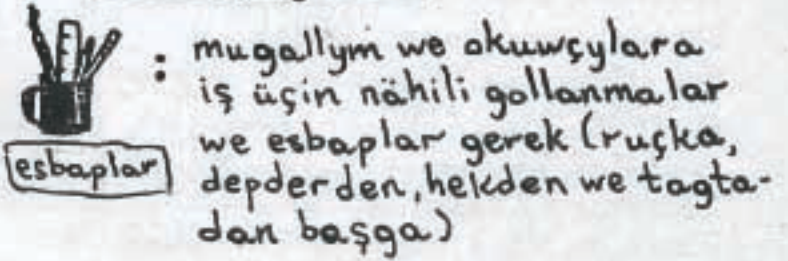 : mugallym we okuwçylara
iş üçin nähili gollanmalar
we esbaplar gerek (ruçka,
esbaplar
depderden, hekden we tagta-
dan başga)